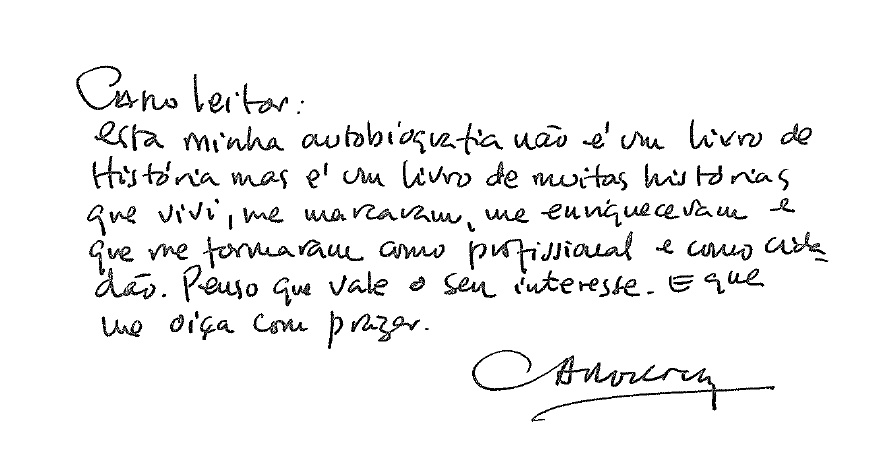 Caro leitor:
esta minha autobiografia não é um livro de
História mas é um livro de muitas histórias
que vivi, me marcaram, me enriqueceram e
que me formaram como profissional e como cida-
dão. Penso que vale o seu interesse. E que
me oiça com prazer.